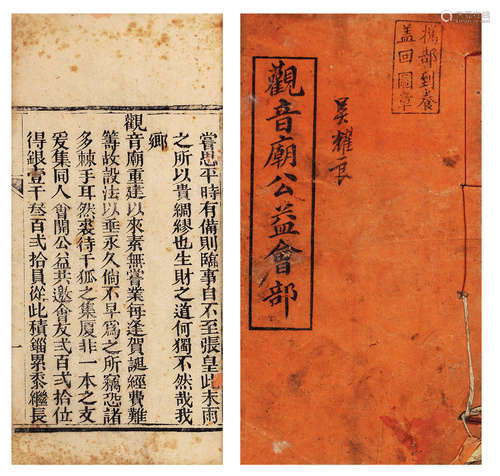 嘗思平時有備則臨事自不至張皇此未雨
之所以貴綢繆也生財之道何獨不然哉我
鄉
觀音廟重建以來素無嘗業每逢賀誕經費難
籌故設法以垂永久倘不早為之所竊恐諸
多棘手耳然裘待千狐之集厦非一本之支
爰集同人會開公益共邀會友弍百弍拾位
得銀壹千叁百弍拾員從此積錙累黍繼長
携部到
盖回圖章
吳耀
觀音廟公益會部